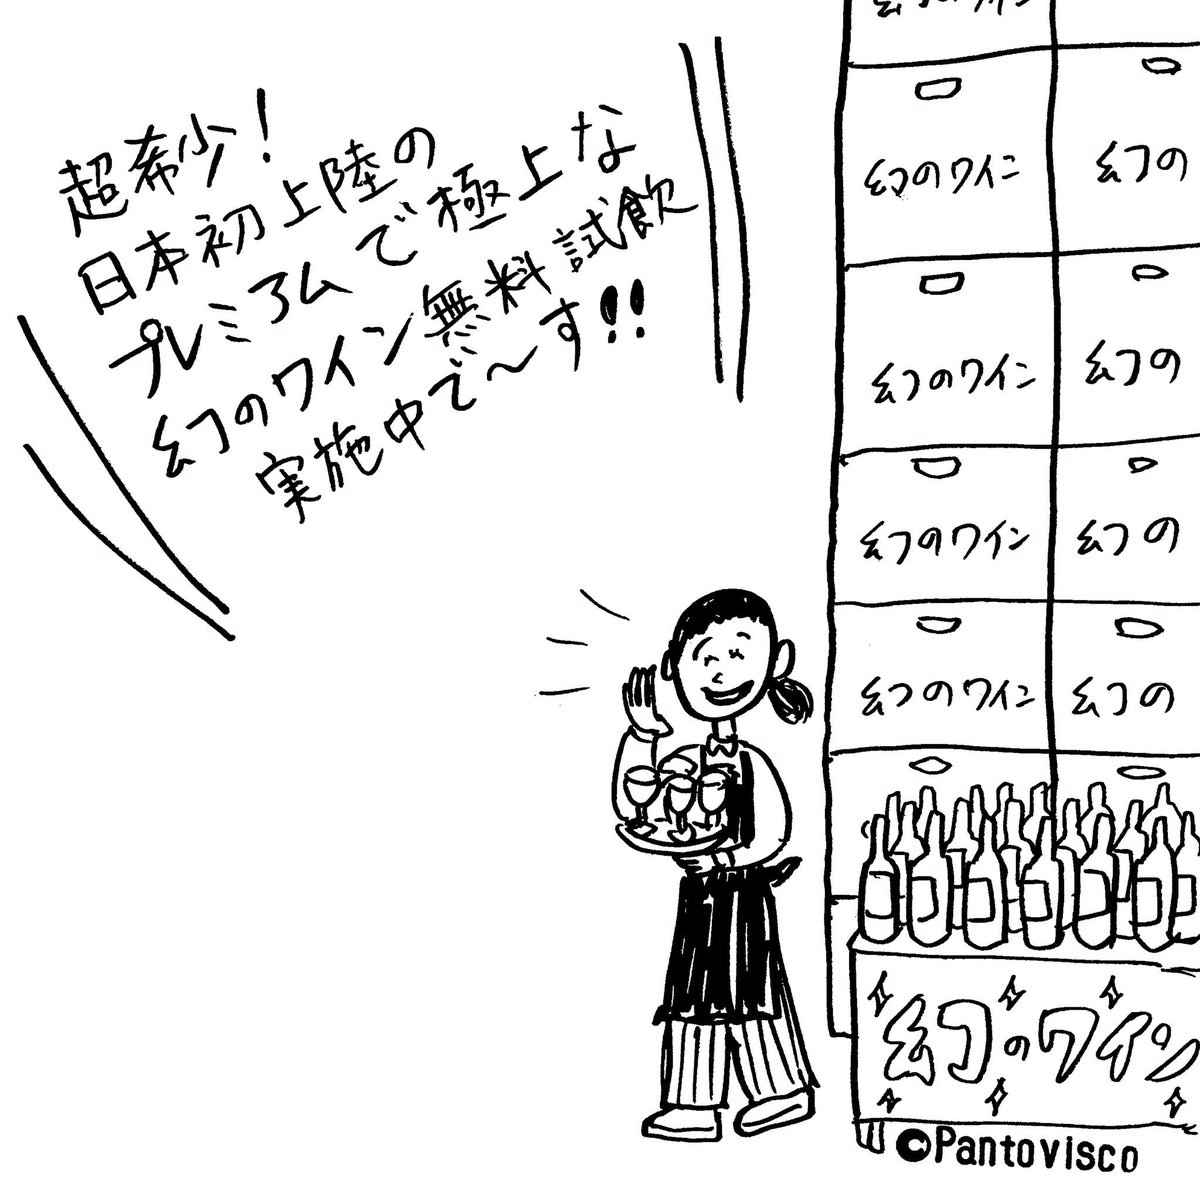 超希少!
日本初上陸の
プレミアムで極上な
幻のワイン無料試飲
実施中で〜す!!
幻のワイン
幻のワイン 幻の
幻のワイン 幻の
幻のワイン 幻の
幻のワイン 幻の
幻のワイン
©Pantovisco